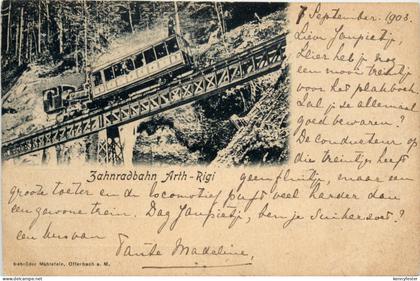 7 September 1903.
Lieve Jampietje,
Hier heb je nog
een mooi treintje
voor het plakboek.
Zal je se allemaal
goed bewaren?
De conducteur op
die treintjes heeft
Zahnradbahn Arth-Rigi
geen fluitje, maar een
groote toeter en de locomotief puft veel harder dan
een gewone trein. Dag Jampietje, ben je suikerzoet?
een kus van
Tante Madeleine,
Gebrüder Mühlstein, Offenbach a. M.